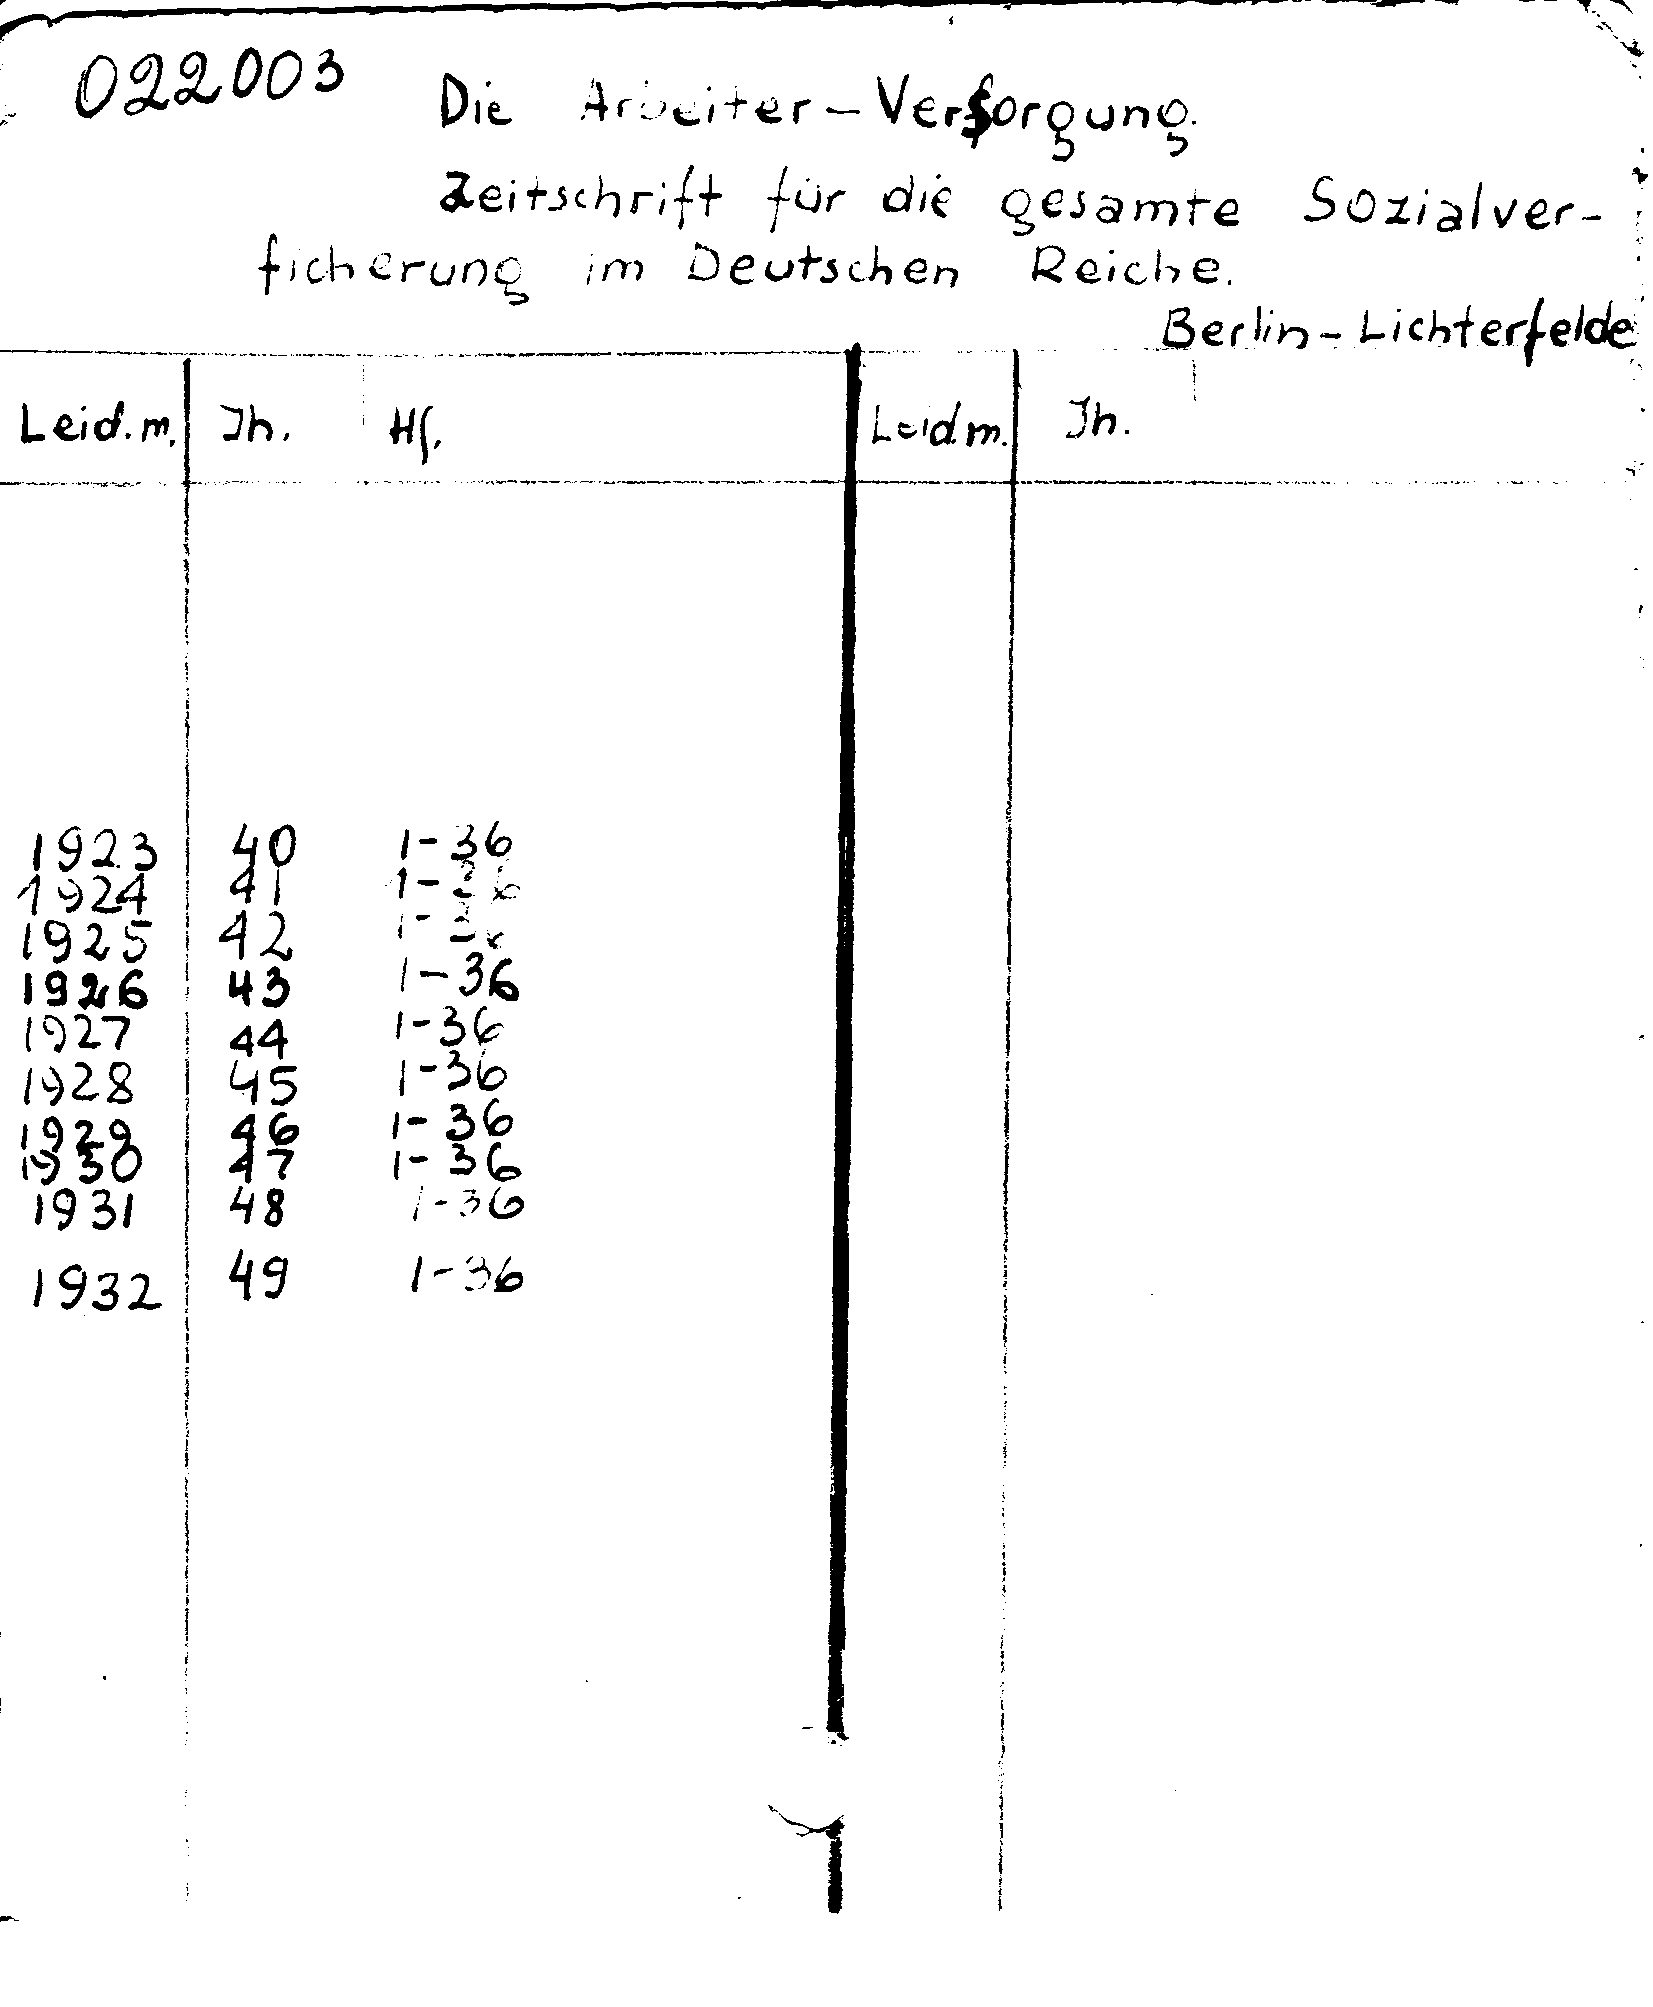 022003
Die Arbeiter-Versorgung.
Zeitschrift für die gesamte Sozialver-
sicherung im Deutschen Reiche.
Berlin-Lichterfelde
Leid.m. Jh. Hf. Leidm. Jh.
1923 40 1-36
1924 41 1-36
1925 42 1-36
1926 43 1-36
1927 44 1-36
1928 45 1-36
1929 46 1-36
1930 47 1-36
1931 48 1-36
1932 49 1-36